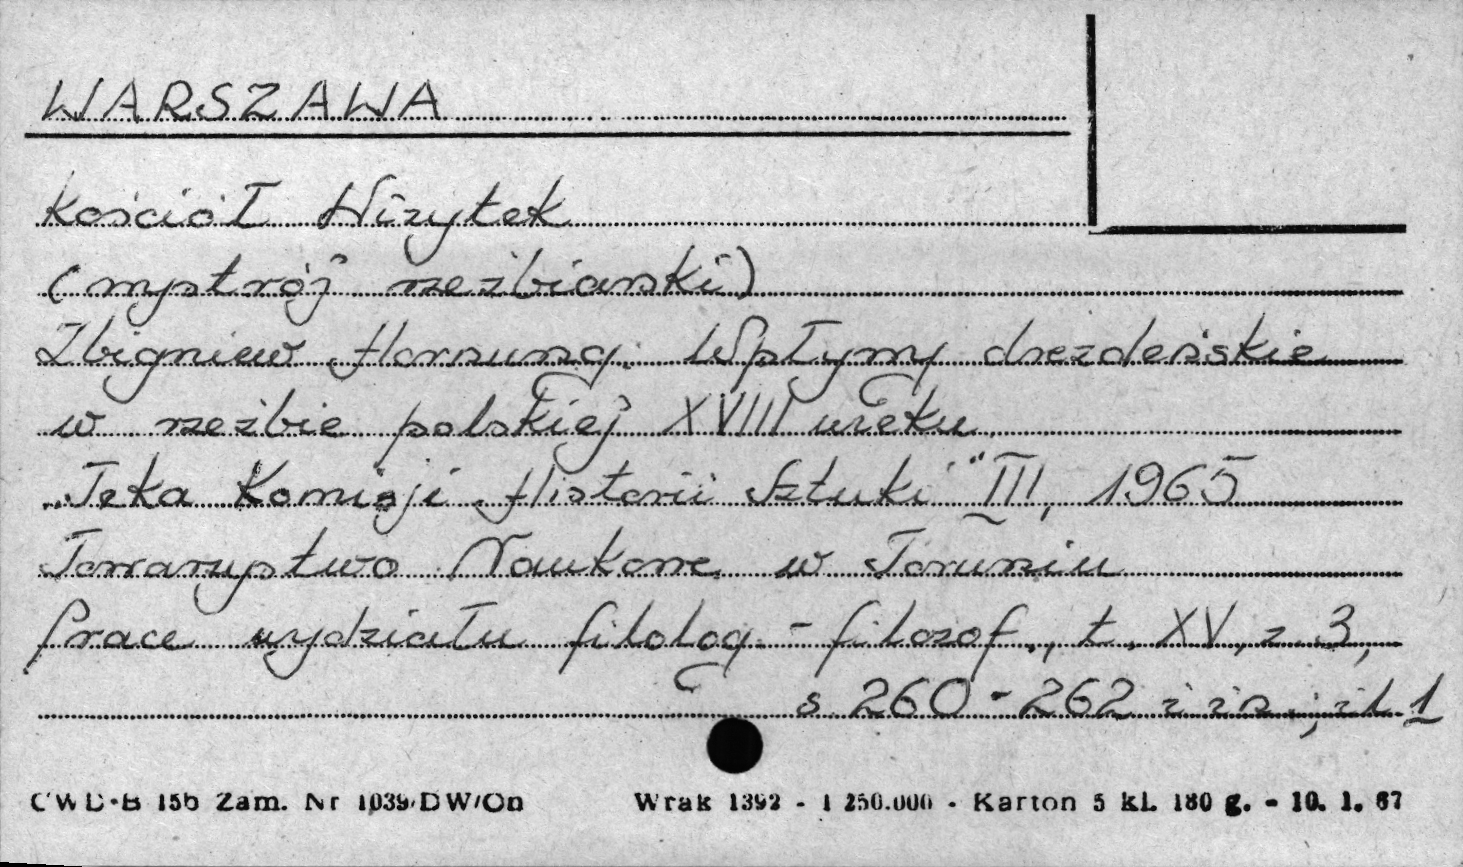 WARSZAWA
Kościół Wizytek
(wystrój rzeźbiarski)
Zbigniew Hornung. Wpływy drezdeńskie
w rzeźbie polskiej XVIII wieku.
„Teka Komisji Historii Sztuki" III, 1965
Towarzystwo Naukowe w Toruniu
Prace wydziału filolog.-filozof., t. XV, z. 3,
s. 260-262 i in.; il. 1
CWD-B 156 Zam. Nr 1039/DW/On Wrak 1392 - 1 250.000 - Karton 5 kl. 180 g. - 10. 1. 67